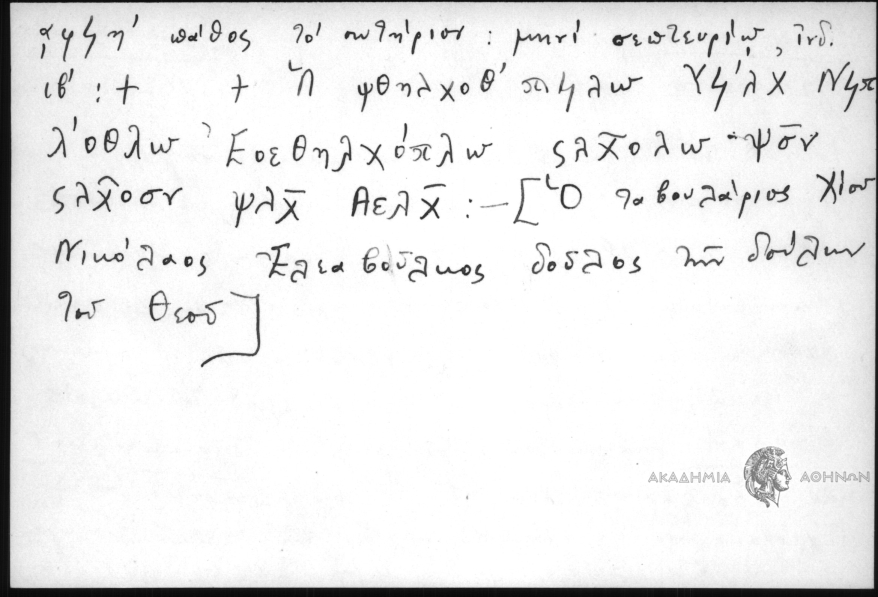 ͵αψϟη' πάθος τὸ σωτήριον : μηνὶ σεπτευρίω, ἰνδ.
ιβ' : + + Ὁ ψθηλχοθ' πϟλω Υϟ'λχ Νϟπ
λ'οθλω Ἐοεθηλχόπλω ςλχ̄ολω ψσ̄ν
ςλχ̄οσν ψλχ̄ Αελχ̄ : — [Ὁ ταβουλάριος Χίου
Νικόλαος Ἐλεαβοῦλκος δοῦλος τῶν δούλων
τοῦ Θεοῦ]
ΑΚΑΔΗΜΙΑ ΑΘΗΝΩΝ